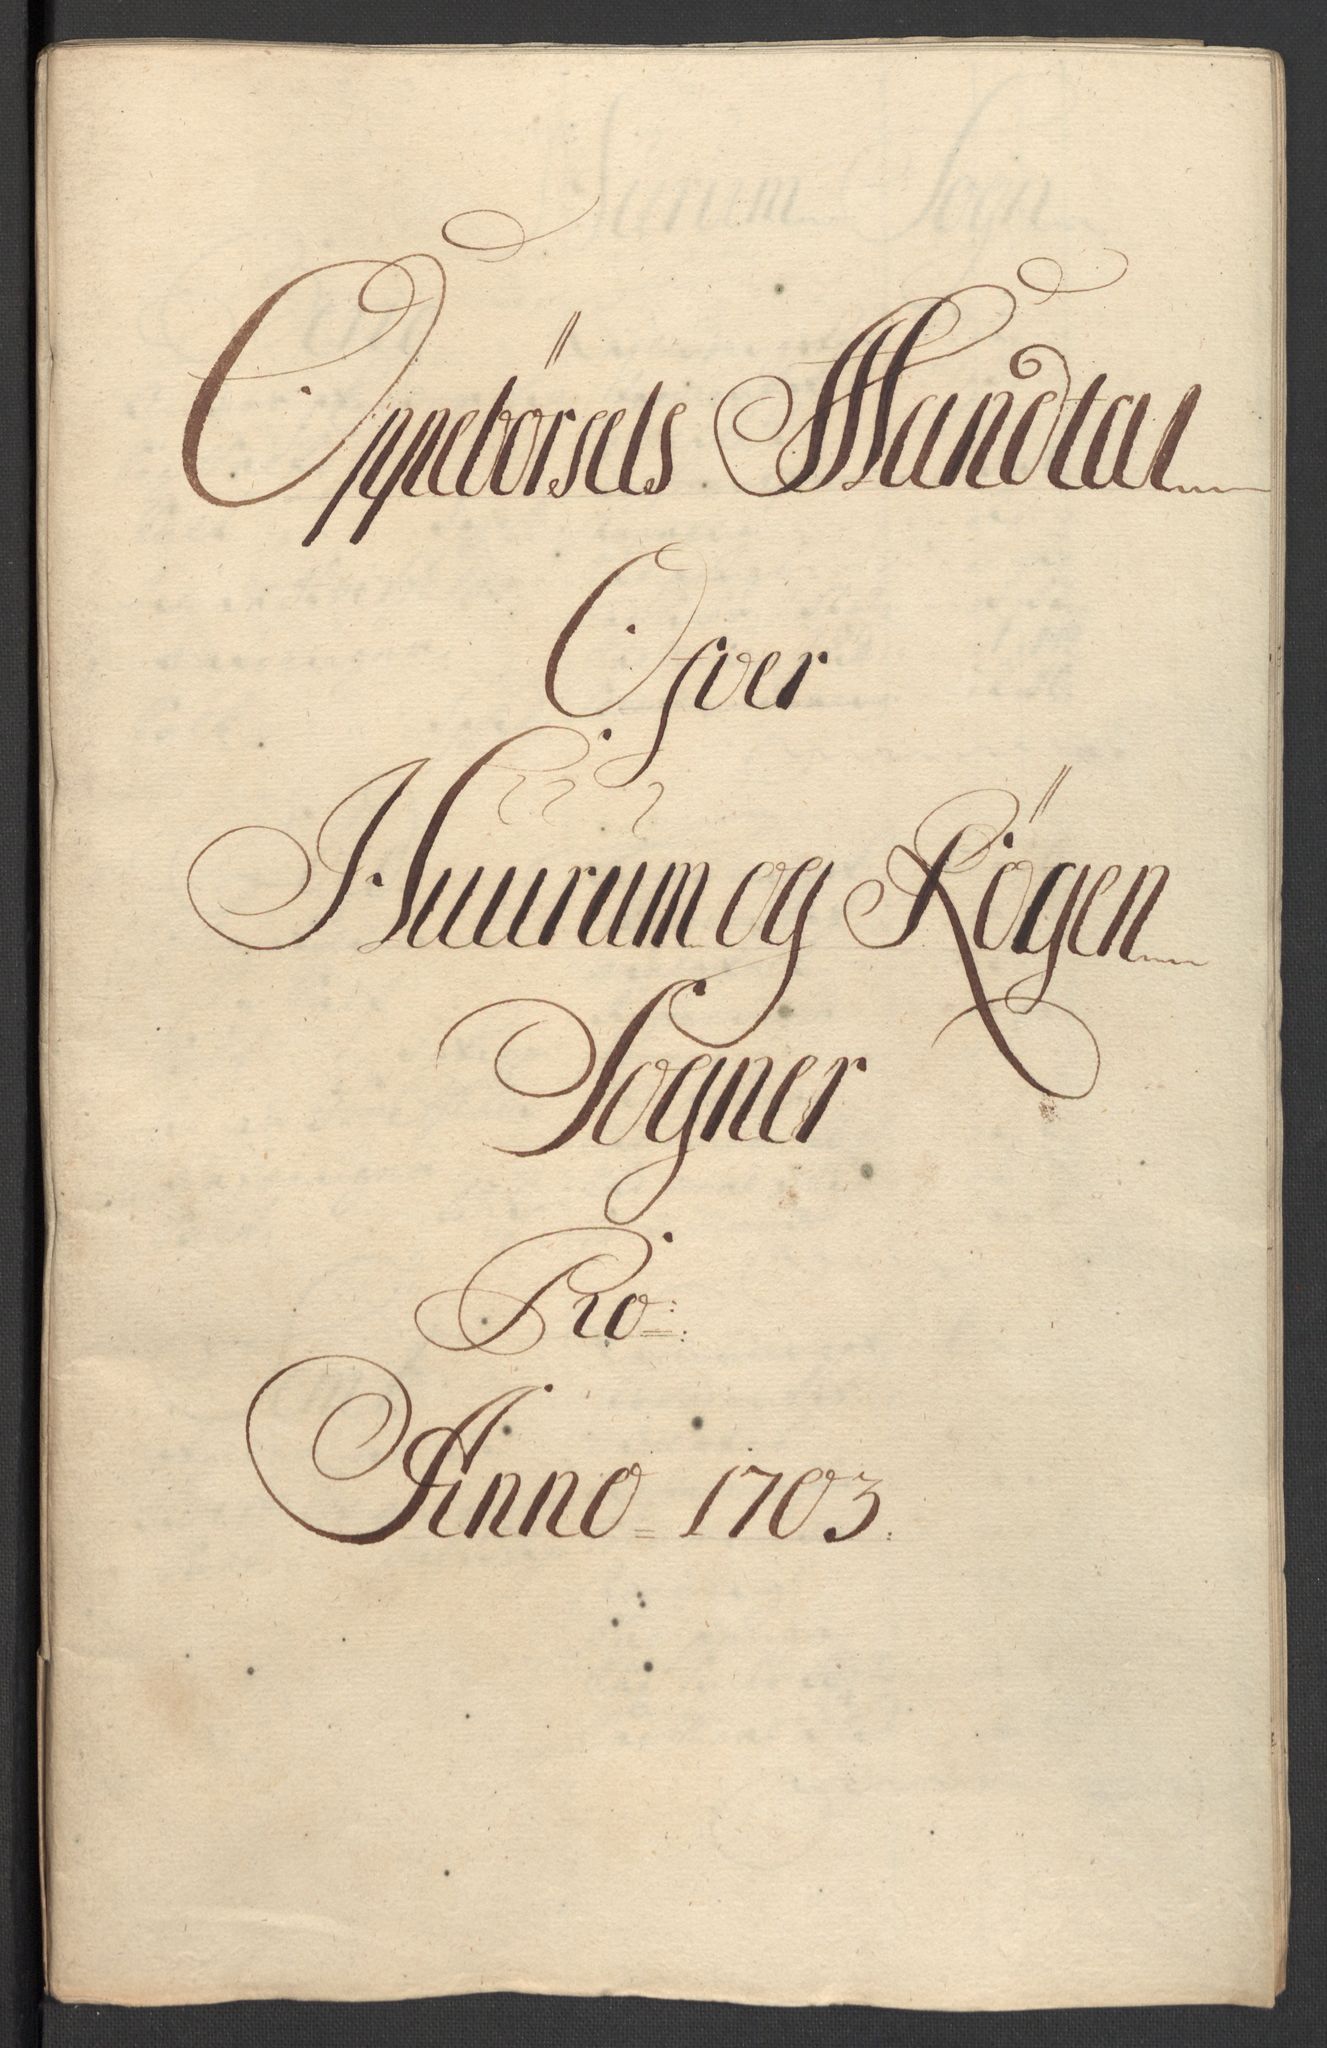 Oppebörsels Mandtal
Ofver
Huurum og Rögen
Sogner
Pro:
Anno 1703.